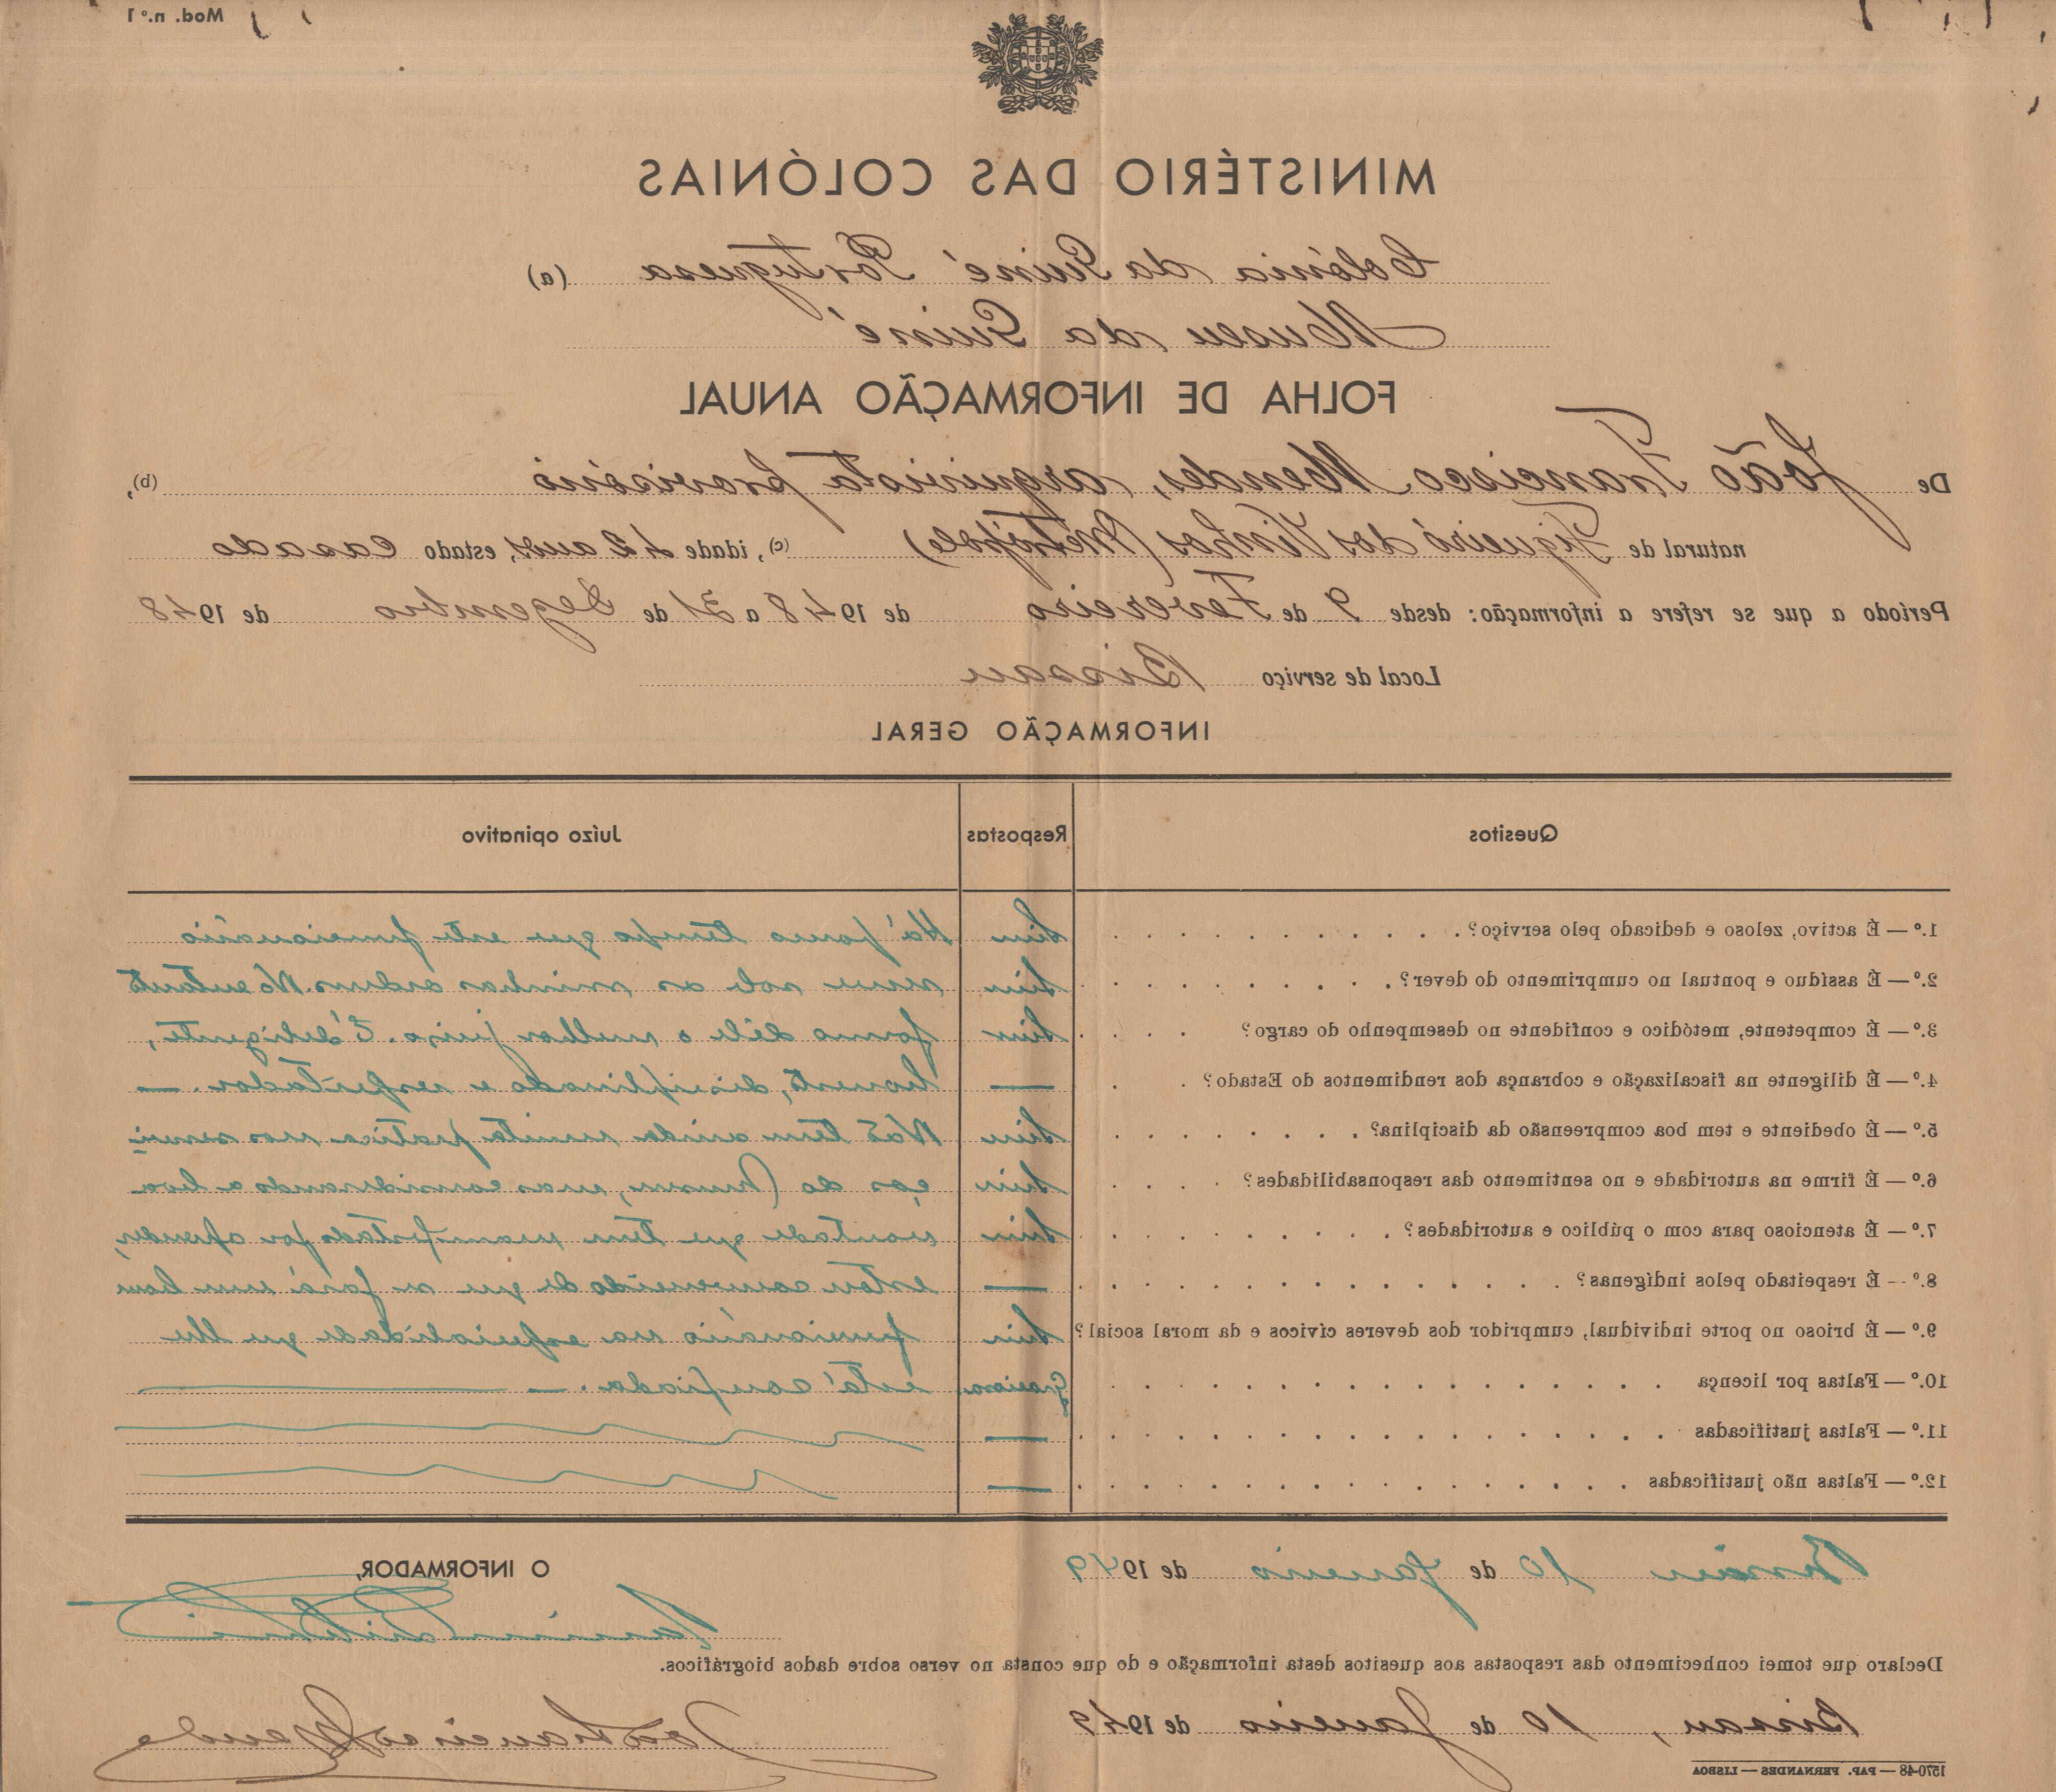 Mod. n.º 1
MINISTÉRIO DAS COLÓNIAS
Colónia da Guiné Portuguesa (a)
Museu da Guiné
FOLHA DE INFORMAÇÃO ANUAL
De João Francisco Mendes, arquivista provisório (b),
natural de Figueiró dos Vinhos (Metrópole) (c), idade 42 anos, estado Casado
Período a que se refere a informação: desde 9 de Fevereiro de 1948 a 31 de Dezembro de 1948
Local de serviço Bissau
INFORMAÇÃO GERAL
Quesitos Respostas Juízo opinativo
1.º — É activo, zeloso e dedicado pelo serviço? Sim Há pouco tempo que este funcionário
2.º — É assíduo e pontual no cumprimento do dever? Sim serve sob as minhas ordens. No entanto
3.º — É competente, metódico e confidente no desempenho do cargo? Sim formo dêle o melhor juizo. É deligente,
4.º — É diligente na fiscalização e cobrança dos rendimentos do Estado? — honesto, disciplinado e respeitador. —
5.º — É obediente e tem boa compreensão da disciplina? Sim Não tem ainda muita pratica nos servi-
6.º — É firme na autoridade e no sentimento das responsabilidades? Sim ços do Museu, mas considerando a boa
7.º — É atencioso para com o público e autoridades? Sim vontade que tem manifestado por aprender,
8.º — É respeitado pelos indígenas? — estou convencido de que se fará um bom
9.º — É brioso no porte individual, cumpridor dos deveres cívicos e da moral social? Sim funcionário na especialidade que lhe
10.º — Faltas por licença Graciosa está confiada. —
11.º — Faltas justificadas —
12.º — Faltas não justificadas —
Bissau 10 de Janeiro de 1949 O INFORMADOR,
Declaro que tomei conhecimento das respostas aos quesitos desta informação e do que consta no verso sobre dados biográficos.
Bissau, 10 de Janeiro de 1949 João Francisco Mendes
1570-48 — PAP. FERNANDES — LISBOA